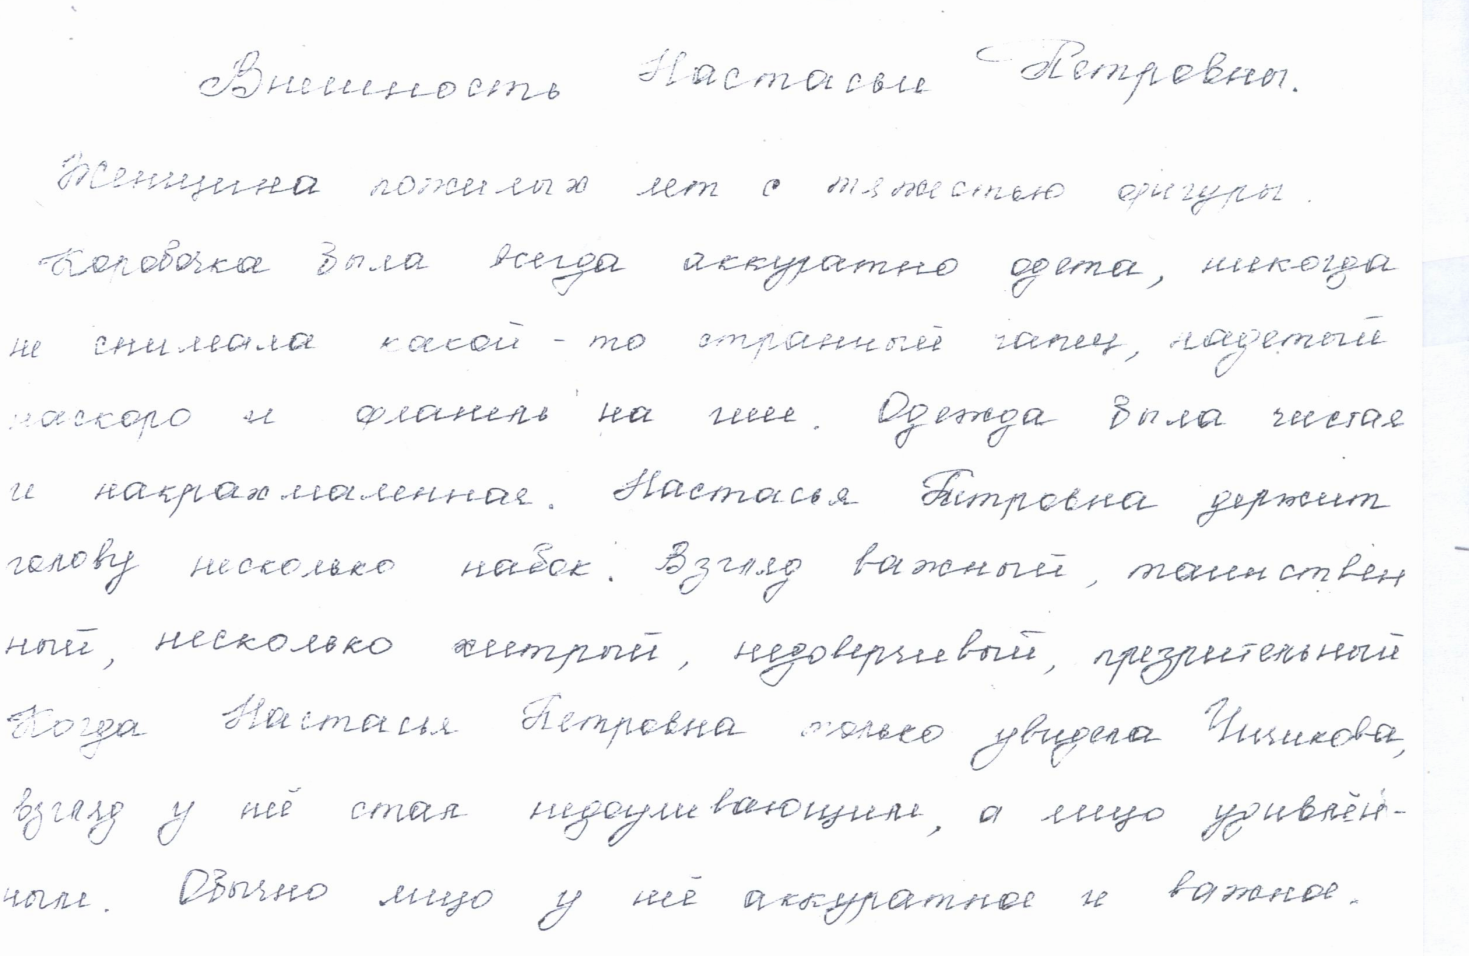 Внешность Настасьи Петровны.
Женщина пожилых лет с тяжестью фигуры.
Коробочка была всегда аккуратно одета, никогда
не снимала какой-то странный чапец, надетый
наскоро и фланель на шее. Одежда была чистая
и накрахмаленная. Настасья Петровна держит
голову несколько набок. Взгляд важный, таинствен
ный, несколько хитрый, недоверчивый, презрительный
Когда Настасья Петровна только увидела Чичикова,
взгляд у неё стал недоумевающим, а лицо удивлён-
ным. Обычно лицо у неё аккуратное и важное.